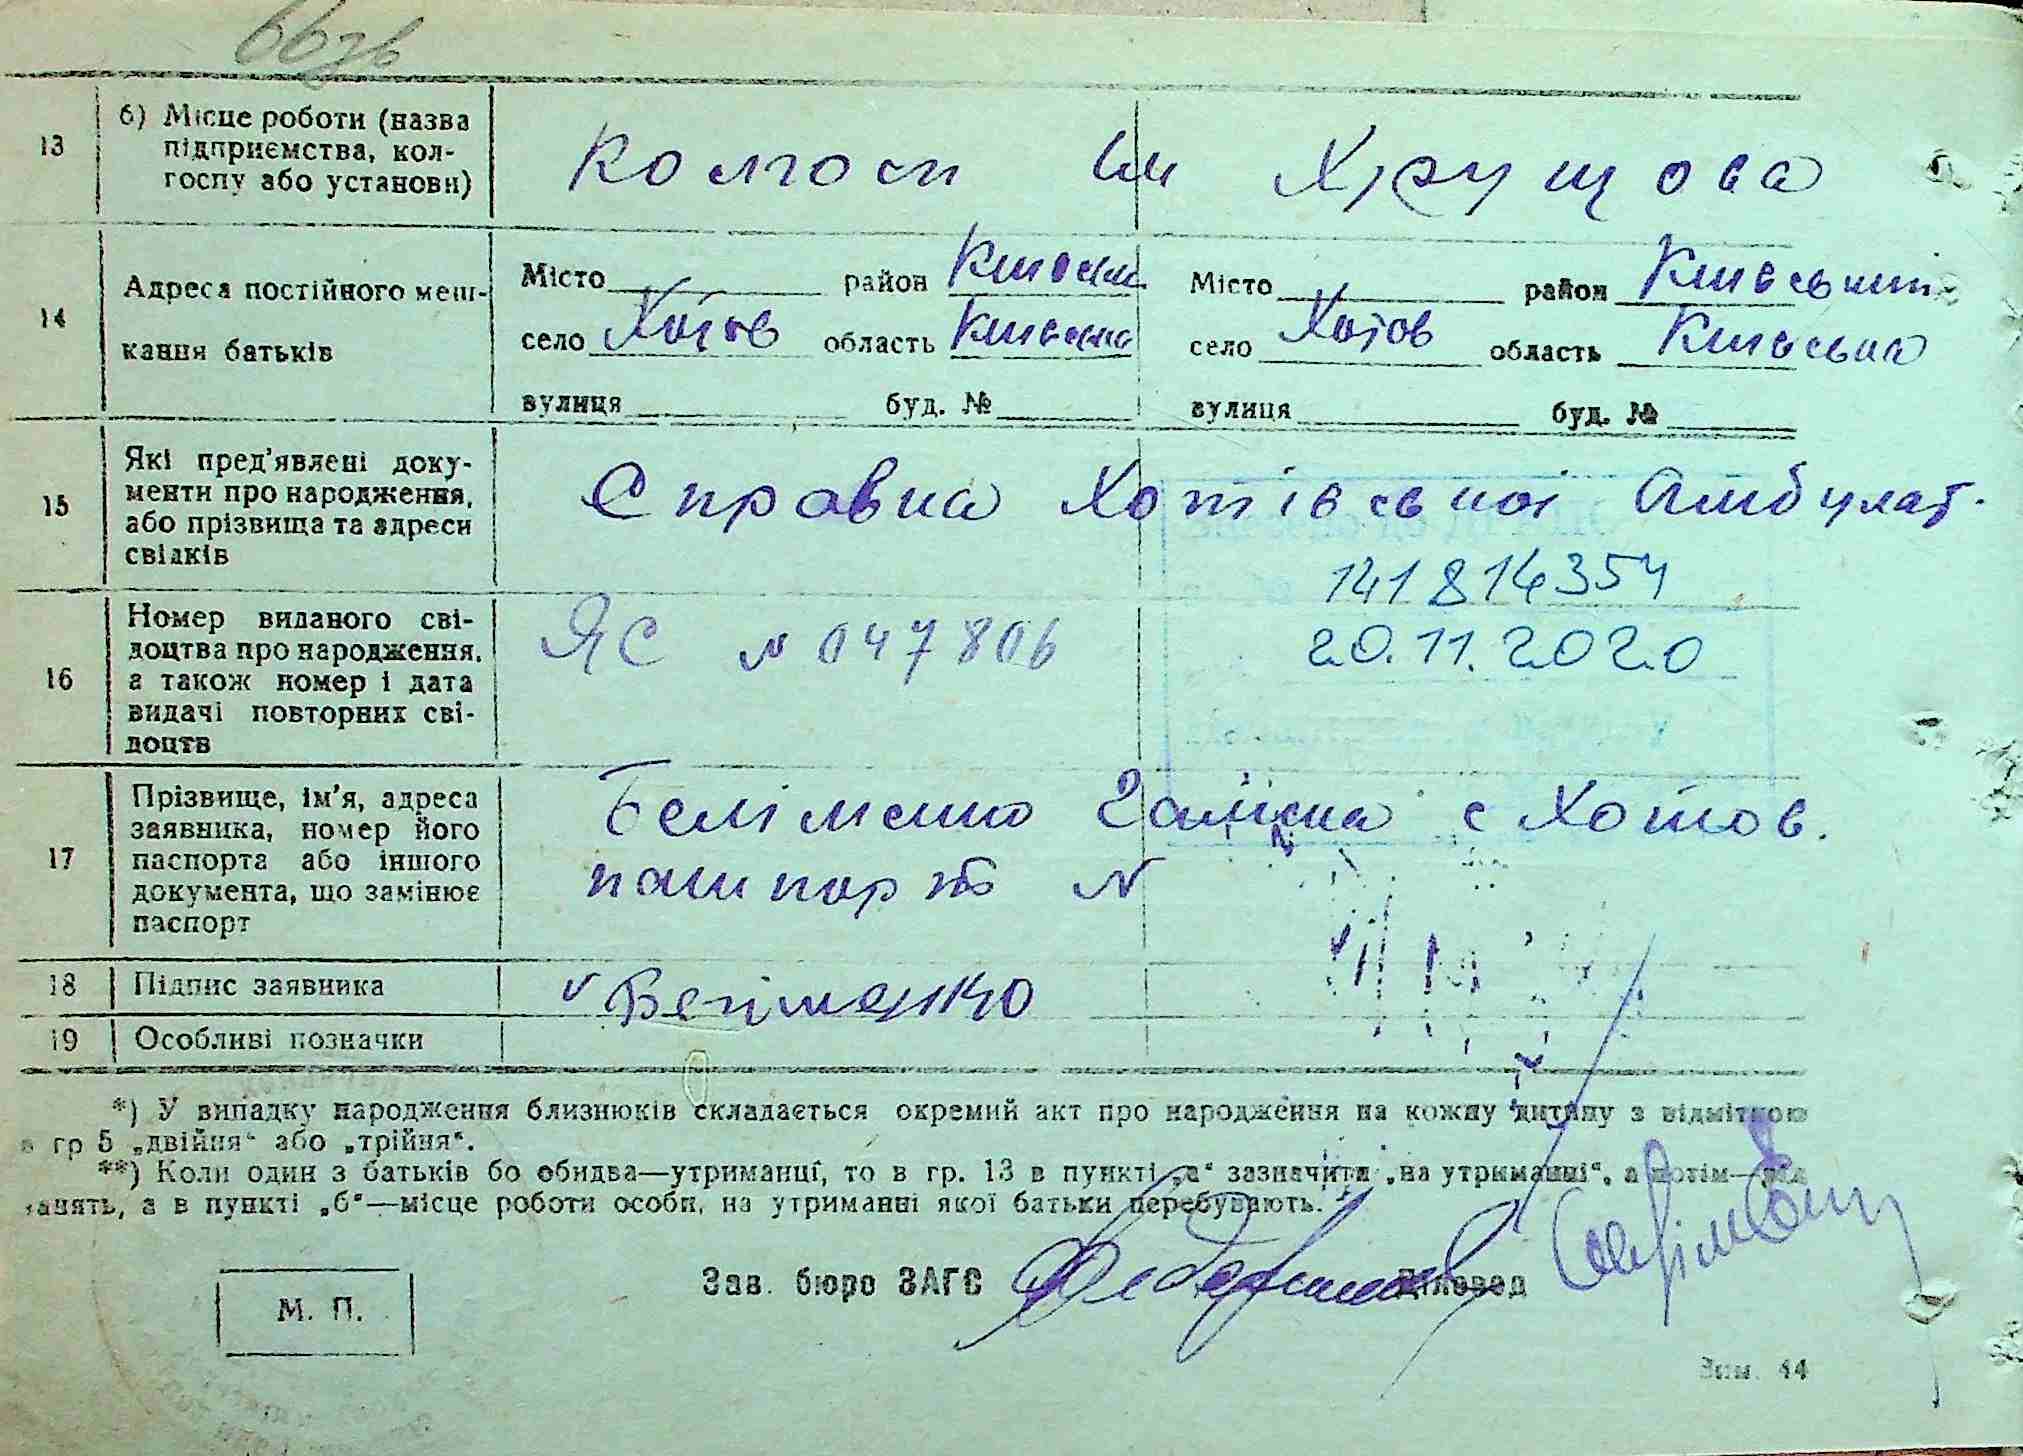 66зв
13
б) Місце роботи (назва
підприємства, кол-
госпу або установи)
Колгосп ім Хрущова
14
Адреса постійного меш-
кання батьків
Місто район Київськ
село Хотов область Київська
вулиця буд. №
Місто район Київський
село Хотов область Київська
вулиця буд. №
15
Які пред'явлені доку-
менти про народження,
або прізвища та адреси
свідків
Справка Хотівської Амбулат.
141814354
20.11.2020
16
Номер виданого сві-
доцтва про народження,
а також номер і дата
видачі повторних сві-
доцтв
ЯС № 047806
17
Прізвище, ім'я, адреса
заявника, номер його
паспорта або іншого
документа, що замінює
паспорт
Беліменко с Хотов.
пашпорт №
18
Підпис заявника
Веліменко
19
Особливі позначки
*) У випадку народження близнюків складається окремий акт про народження на кожну дитину з відміткою
в гр 5 „двійня“ або „трійня“.
**) Коли один з батьків бо обидва—утриманці, то в гр. 13 в пункті „а“ зазначити „на утриманні“, а потім—рід
занять, а в пункті „б“—місце роботи особи, на утриманні якої батьки перебувають.
Зав. бюро ЗАГС
Діловод
М. П.
Зам. 44